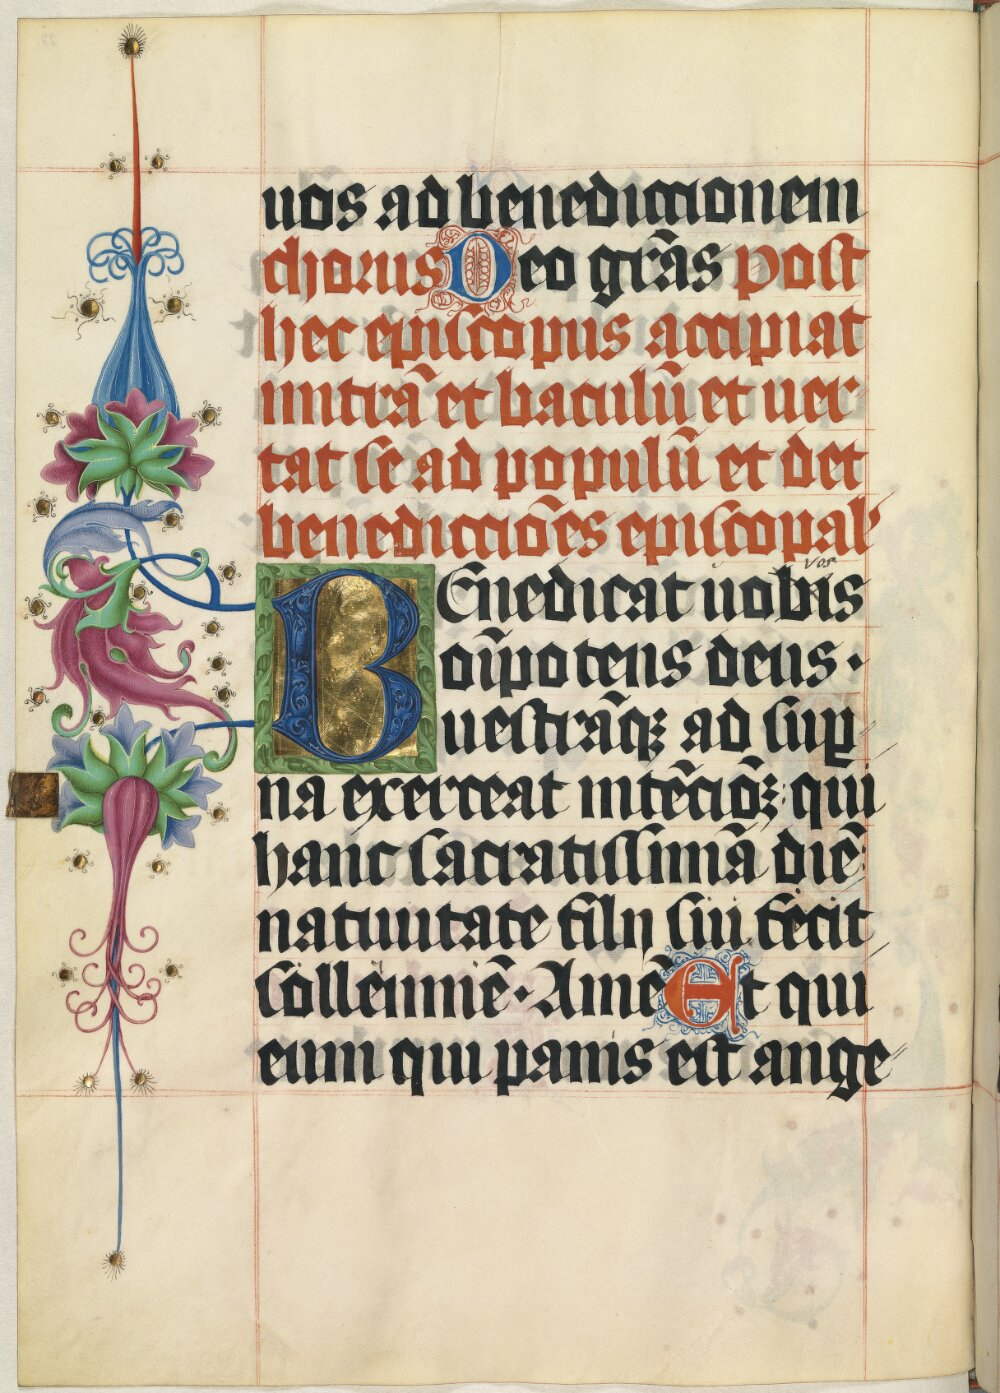 uos ad benediccionem
chorus Deo grãs post
hec epĩscopus accipiat
mitrã et baculũ et uer
tat se ad populũ et det
benediccio͂es episcopal'
vos
BEnedicat uobis
oĩpotens deus ·
uestrãq; ad sup
na exerceat inte͂cio͂ꝫ qui
hanc sacratissimã die͂
natiuitate filii sui fecit
sollemne͂ · Ame͂ Et qui
eum qui panis est ange